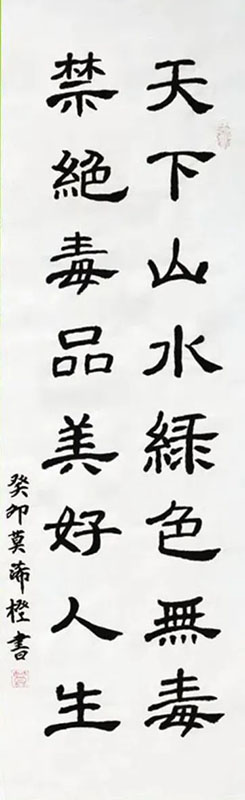 天下山水緑色無毒
禁絕毒品美好人生
癸卯莫沛橙書